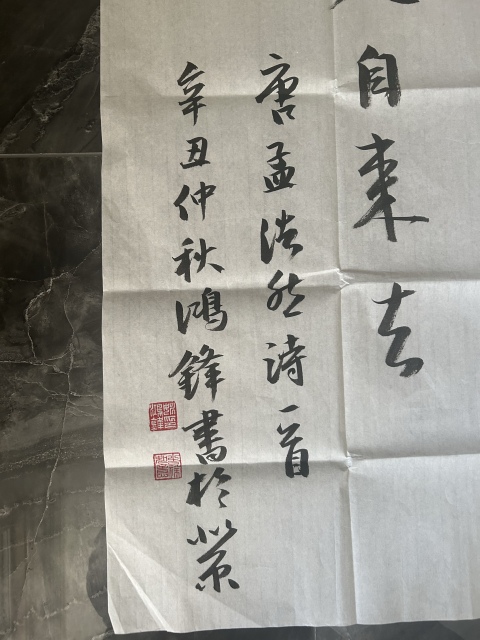 自来去
唐孟浩然诗一首
辛丑仲秋鸿锋书于北京